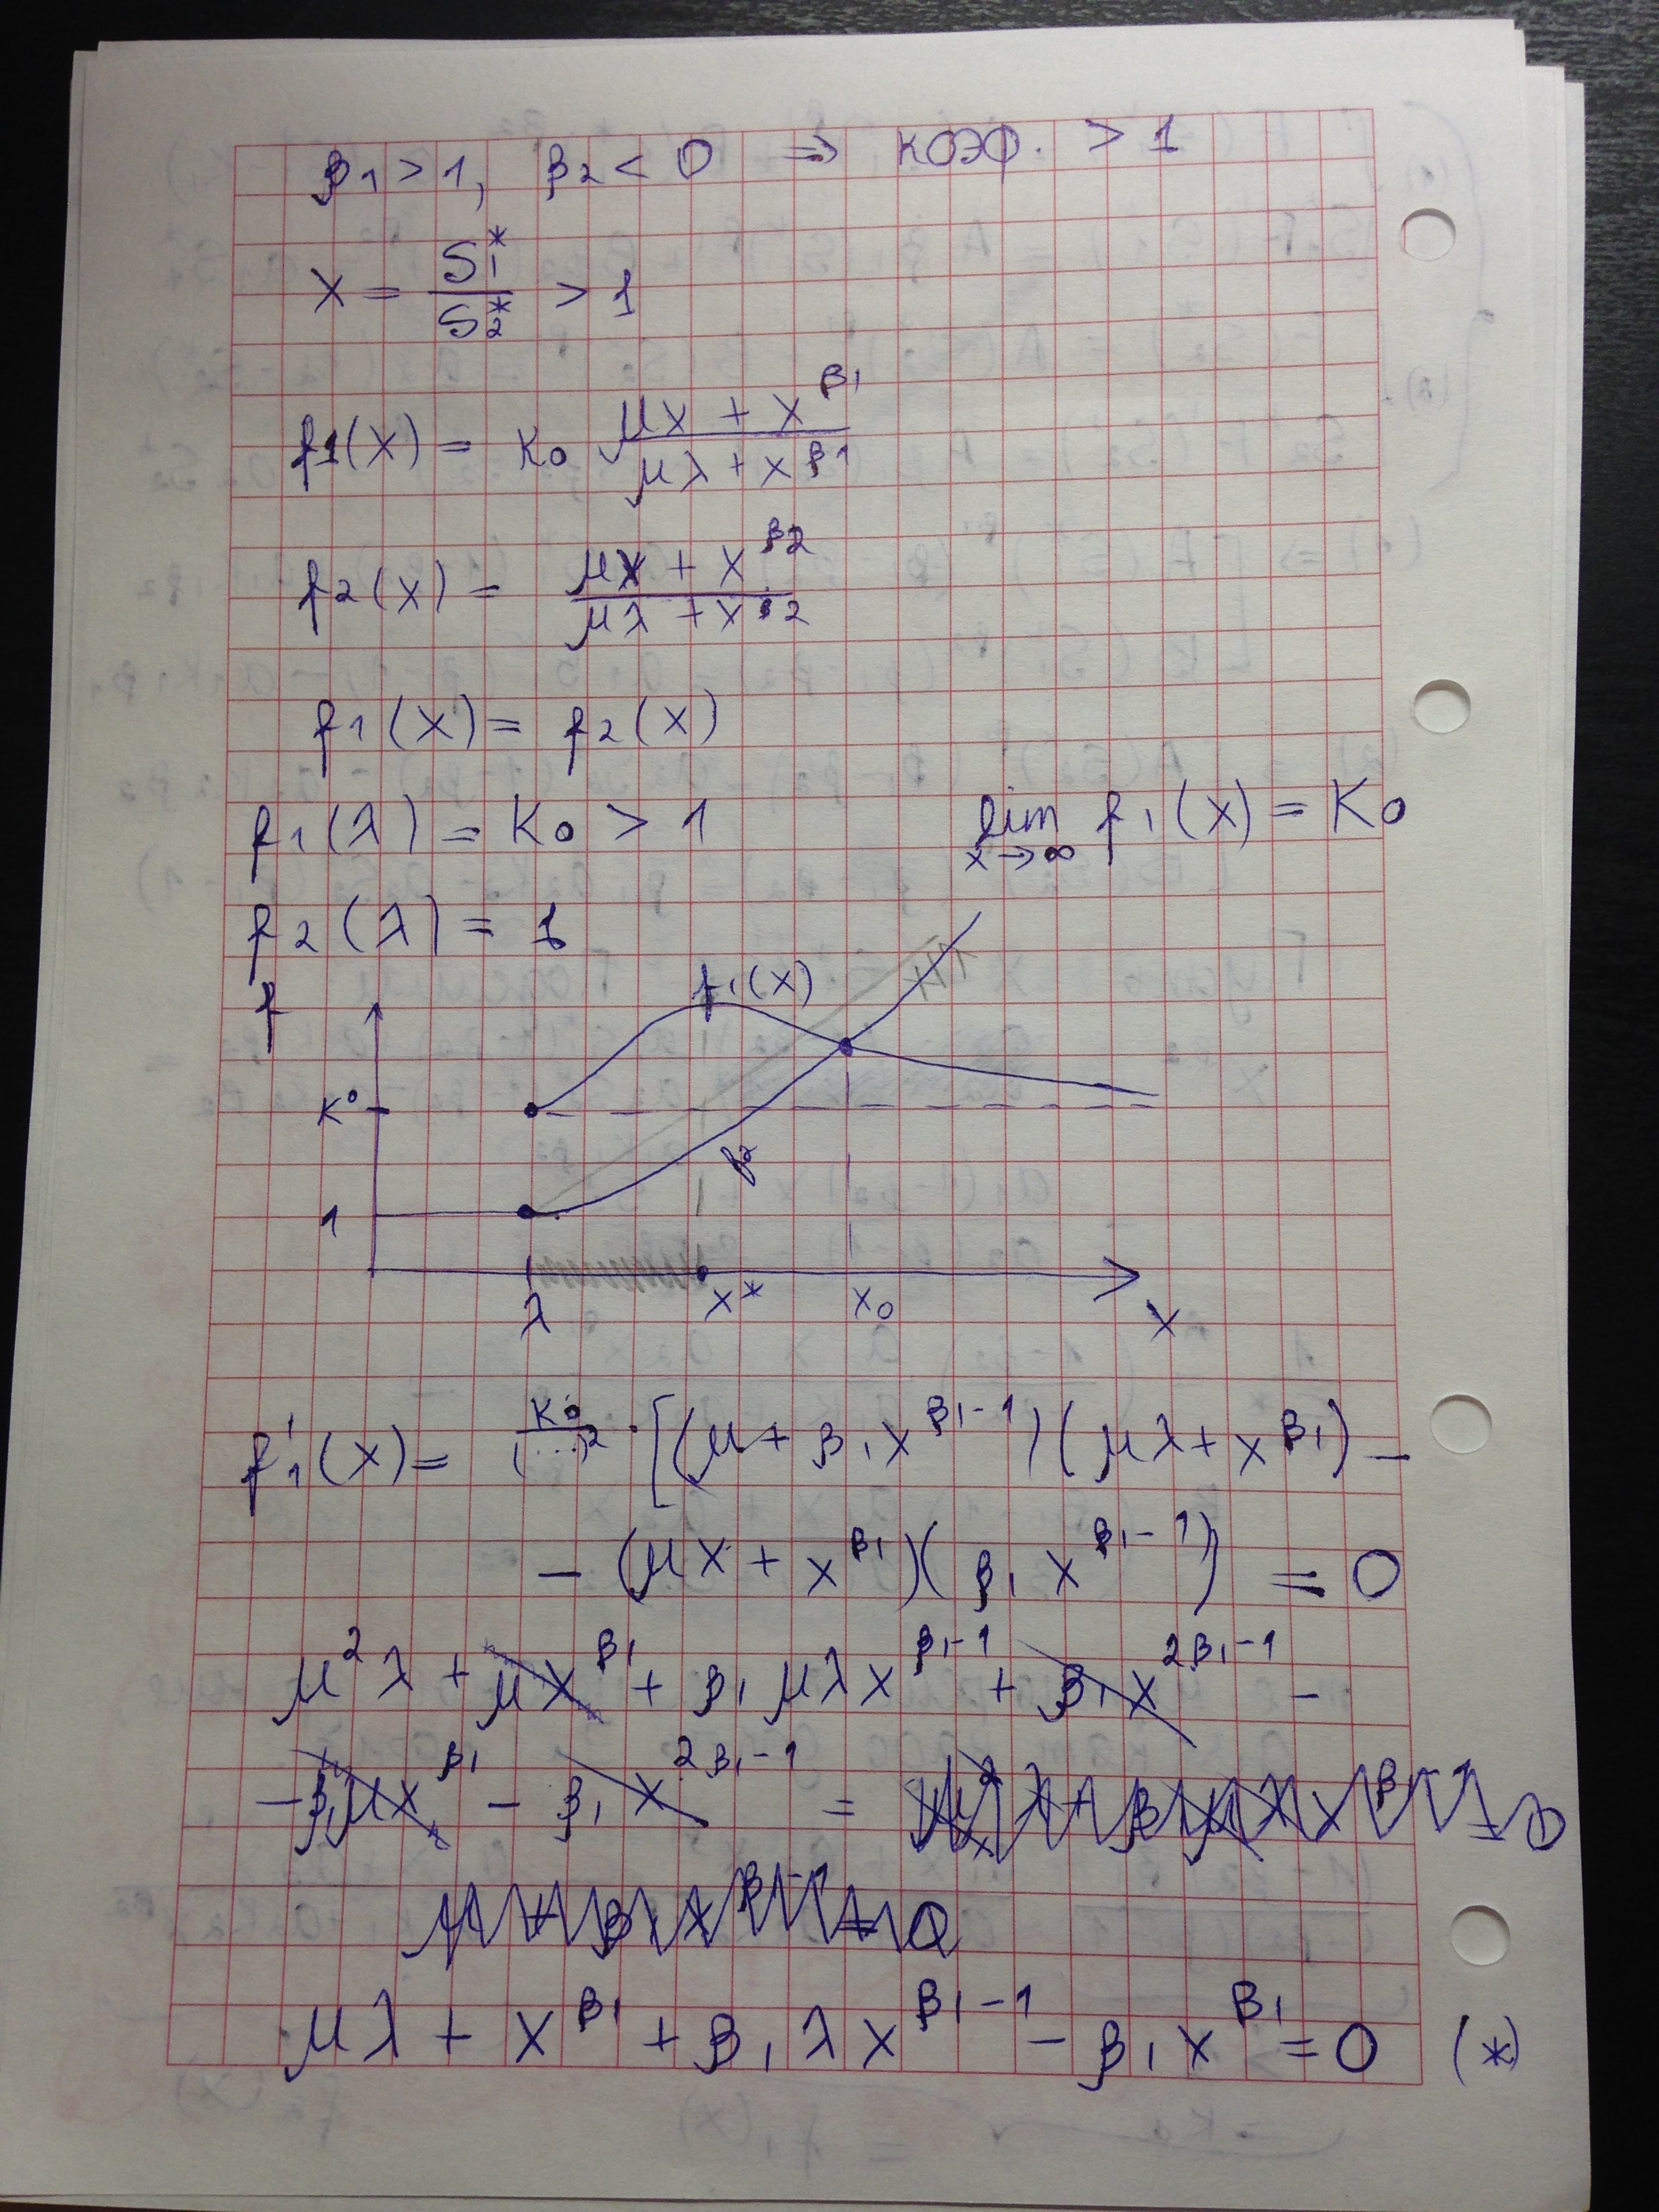 β₁ > 1, β₂ < 0 ⇒ КОЭФ. > 1
x = S₁* / S₂* > 1
f₁(x) = K₀ (μx + x^β₁) / (μλ + x^β₁)
f₂(x) = (μx + x^β₂) / (μλ + x^β₂)
f₁(x) = f₂(x)
f₁(λ) = K₀ > 1
lim x→∞ f₁(x) = K₀
f₂(λ) = 1
f
f₁(x)
K⁰
f₂
1
λ
x*
x₀
x
f₁'(x) = K₀/(...)² · [(μ + β₁x^(β₁-1))(μλ + x^β₁) –
– (μx + x^β₁)(β₁x^(β₁-1)) = 0
μ²λ + μx^β₁ + β₁μλx^(β₁-1) + β₁x^(2β₁-1) –
– β₁μx^β₁ – β₁x^(2β₁-1) =
μλ + x^β₁ + β₁λx^(β₁-1) – β₁x^β₁ = 0 (*)